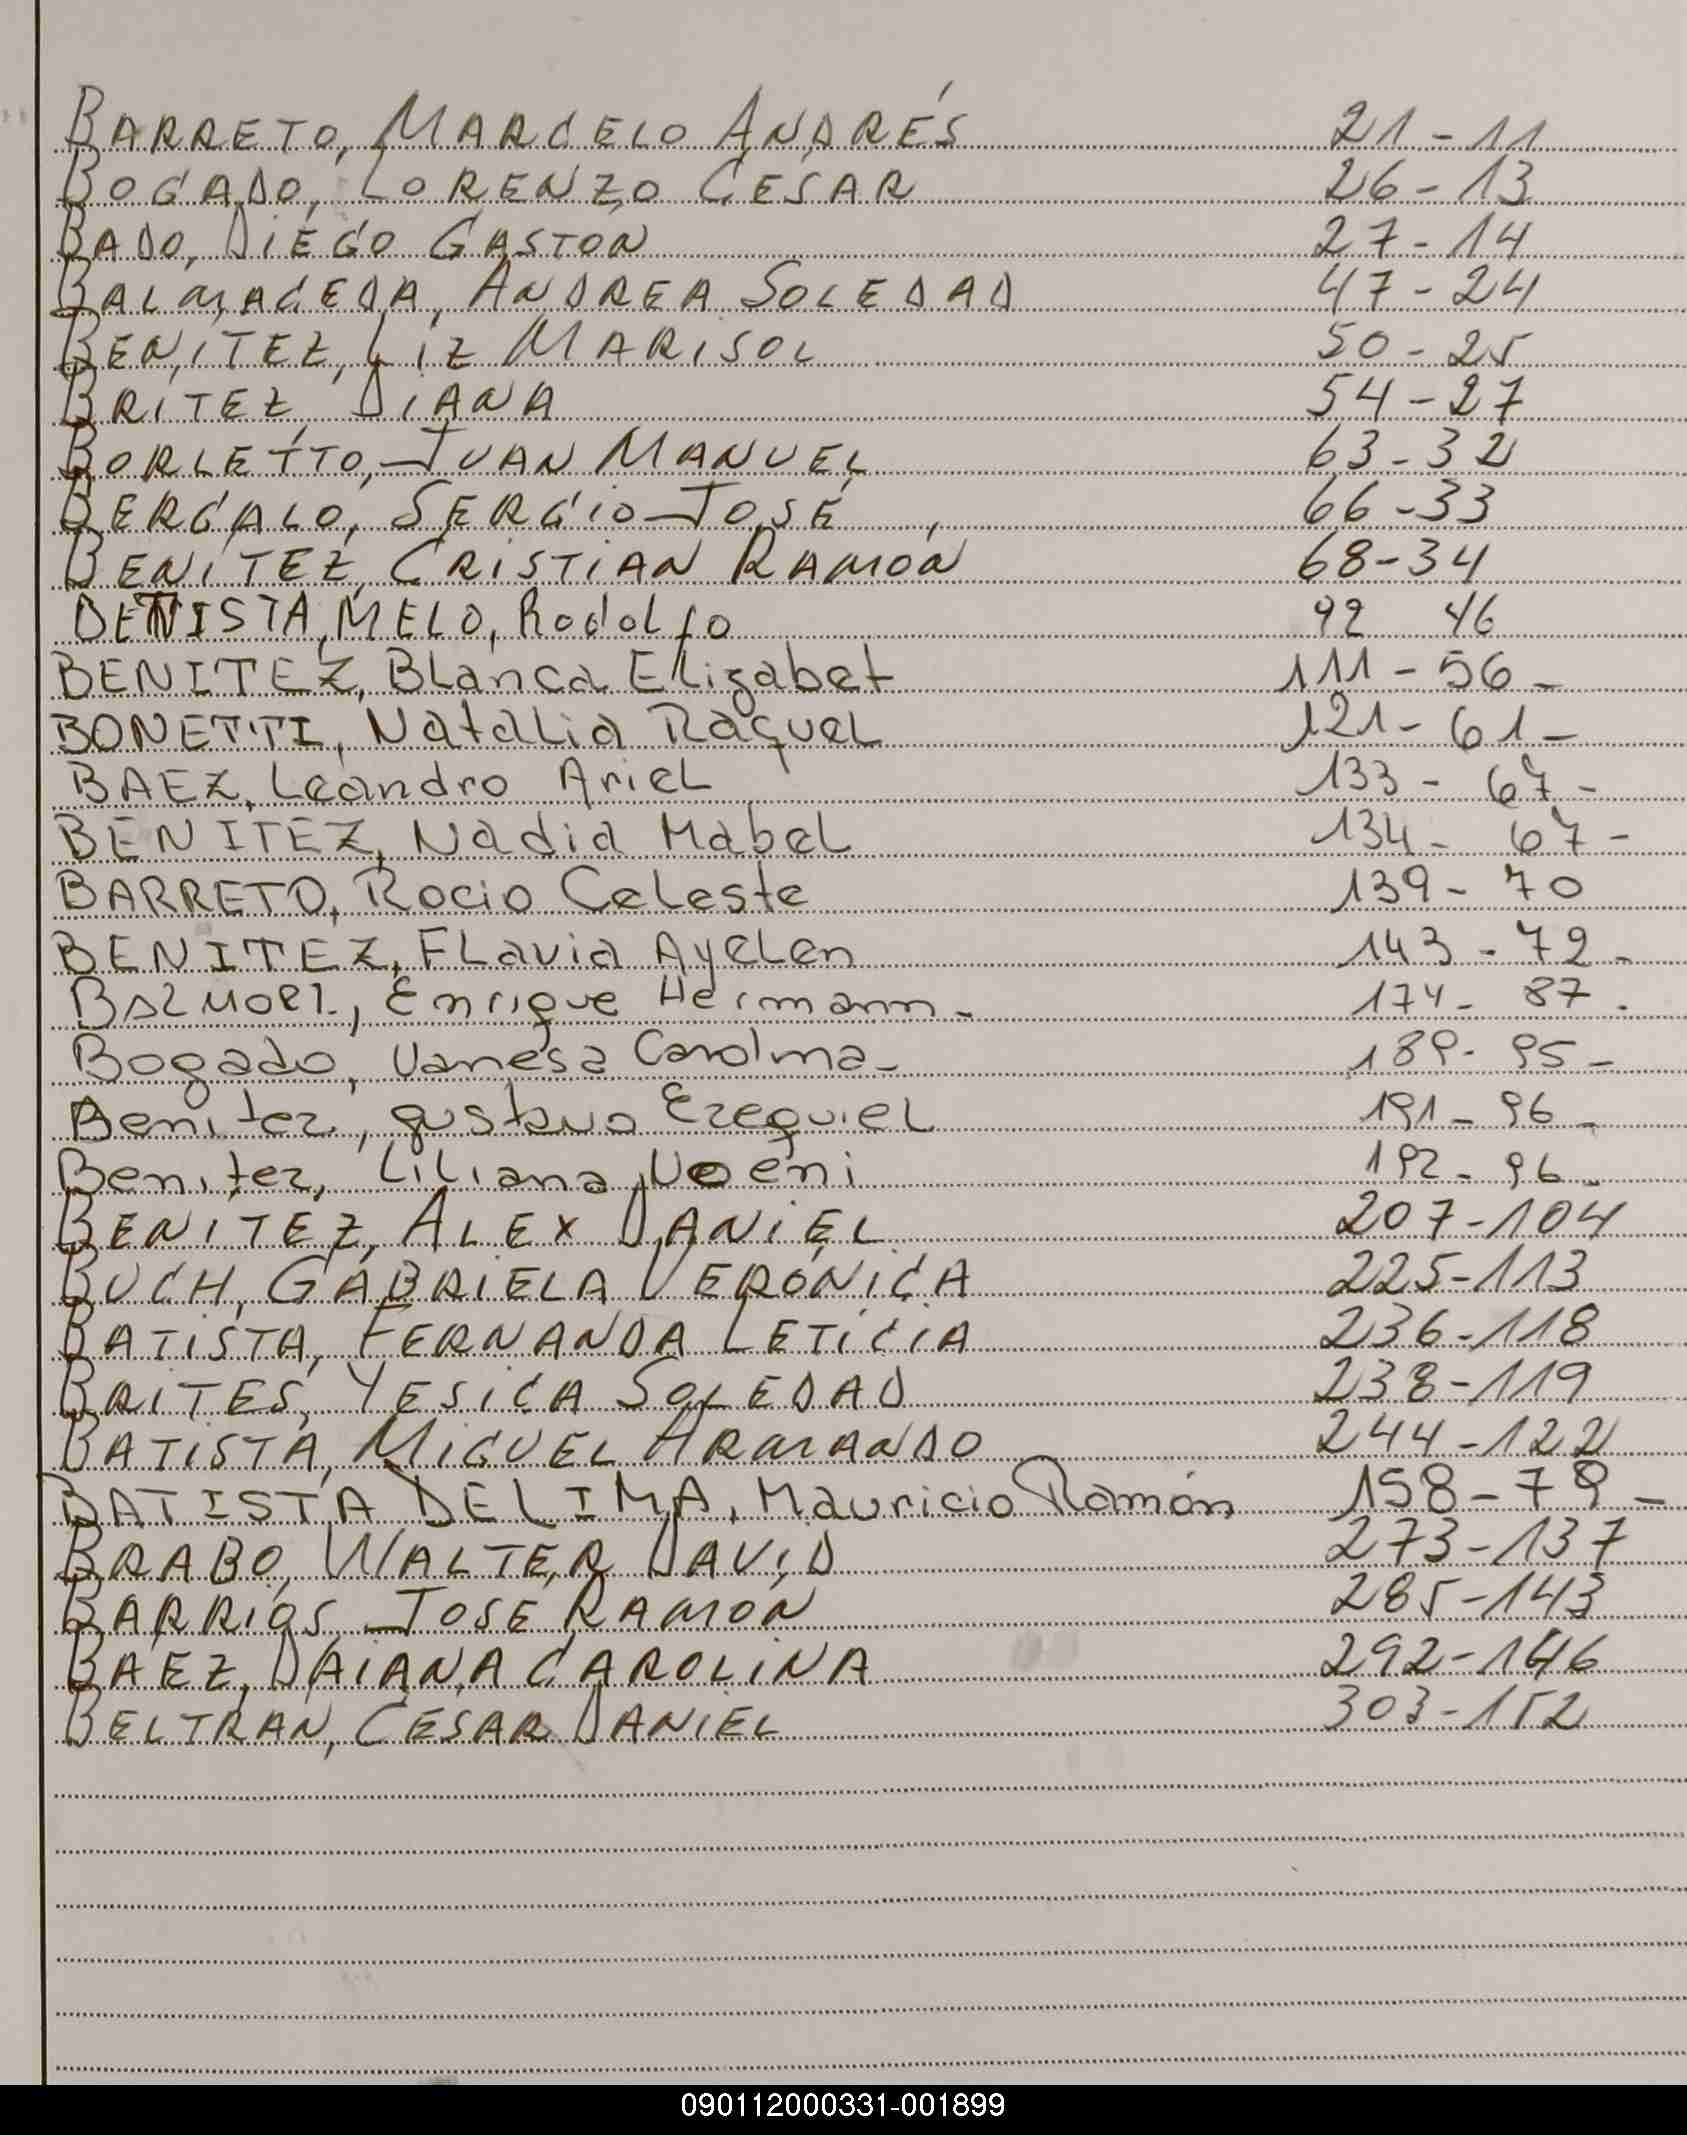 BARRETO, MARCELO ANDRÉS 21-11
BOGADO, LORENZO CESAR 26-13
BADO, DIEGO GASTON 27-14
BALMACEDA, ANDREA SOLEDAD 47-24
BENITEZ, LIZ MARISOL 50-25
BRITEZ, DIANA 54-27
BORLETTO, JUAN MANUEL 63-32
BERGALO, SERGIO JOSÉ 66-33
BENITEZ, CRISTIAN RAMÓN 68-34
MELO, Rodolfo 92 46
BENITEZ, Blanca Elizabet 111-56-
BONETTI, Natalia Raquel 121-61-
BAEZ, Leandro Ariel 133-67-
BENITEZ, Nadia Mabel 134-67-
BARRETO, Rocio Celeste 139-70
BENITEZ, Flavia Ayelen 143-72-
Enrique Hermann- 174-87-
Bogado, Vanesa Carolina- 189-95-
Benitez, gustavo Ezequiel 191-96-
Benitez, Liliana Noemi 192-96-
BENITEZ, ALEX DANIEL 207-104
BUCH, GABRIELA VERÓNICA 225-113
BATISTA, FERNANDA LETICIA 236-118
BRITES, YESICA SOLEDAD 238-119
BATISTA, MIGUEL ARMANDO 244-122
BATISTA DE LIMA, Mauricio Ramón 158-79-
BRABO, WALTER DAVID 273-137
BARRIOS, JOSE RAMÓN 285-143
BAEZ, DAIANA CAROLINA 292-146
BELTRAN, CESAR DANIEL 303-152
090112000331-001899